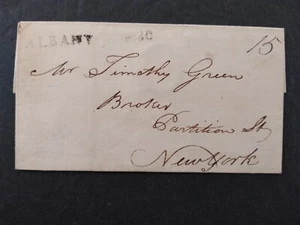 ALBANY
15
Mr Timothy Green
Broker
Partition St
New York